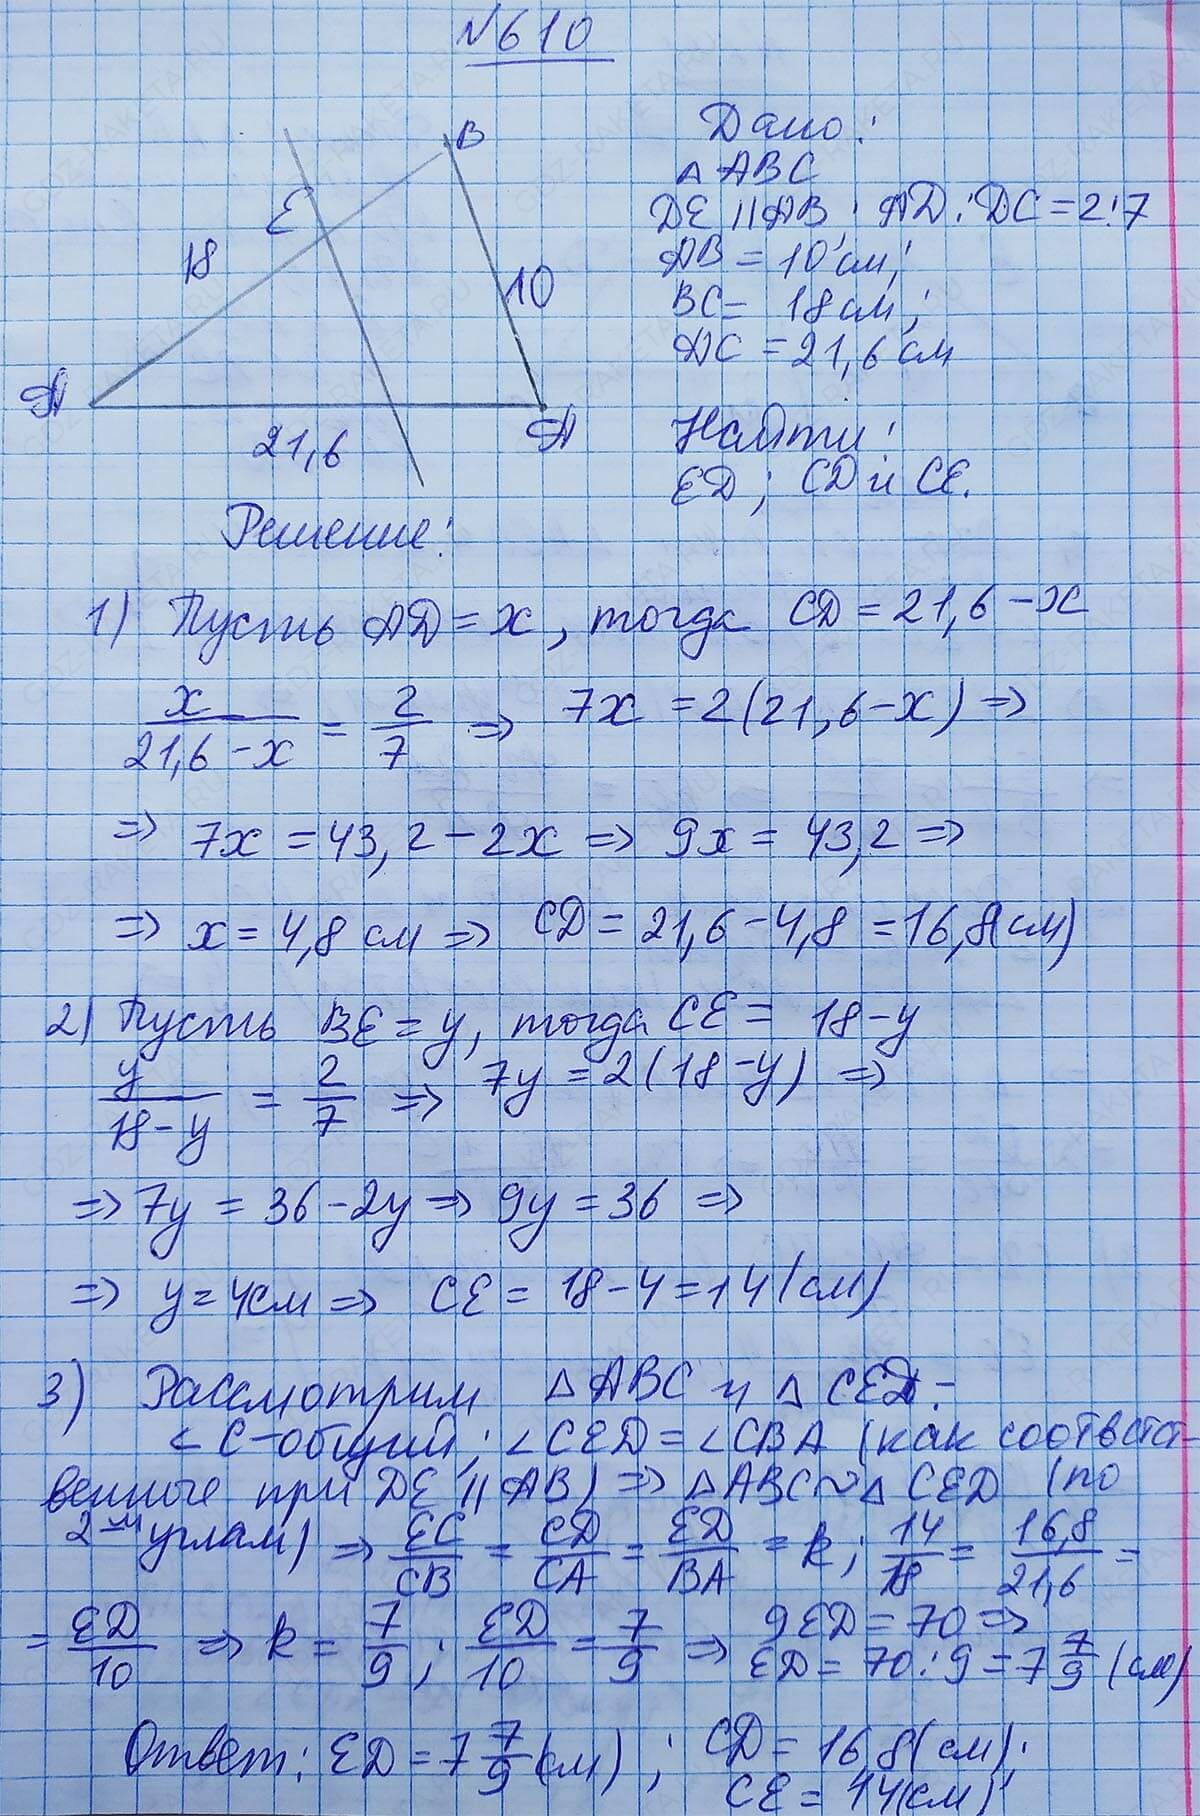 №610
B
E
18
10
A
21,6
A
Дано:
△ ABC
DE || AB; AD:DC=2:7
AB = 10 см;
BC= 18 см;
AC = 21,6 см
Найти:
ED; CD и CE.
Решение:
1) Пусть AD = x, тогда CD = 21,6 - x
x/(21,6 - x) = 2/7 => 7x = 2(21,6 - x) =>
=> 7x = 43,2 - 2x => 9x = 43,2 =>
=> x = 4,8 см => CD = 21,6 - 4,8 = 16,8(см)
2) Пусть BE = y, тогда CE = 18 - y
y/(18 - y) = 2/7 => 7y = 2(18 - y) =>
=> 7y = 36 - 2y => 9y = 36 =>
=> y = 4см => CE = 18 - 4 = 14(см)
3) Рассмотрим △ ABC и △ CED -
∠C-общий; ∠CED = ∠CBA (как соответст-
венные при DE || AB) => △ABC ~ △ CED (по
2-м углам) => EC/CB = CD/CA = ED/BA = k; 14/18 = 16,8/21,6 =
= ED/10 => k = 7/9; ED/10 = 7/9 => 9ED = 70 =>
ED = 70:9 = 7 7/9 (см)
Ответ: ED = 7 7/9 (см); CD = 16,8(см);
CE = 14(см)